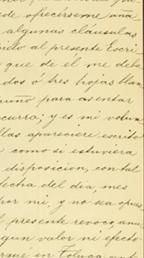 de ofrecérseme aña
algunas cláusulas
al presente Escri
que de el me debe
dos ó tres hojas blan
para asentar
curra; y es mi volun
llas apareciere escrito
como si estuviera
disposicion, con tal
fecha del dia, mes
por mi, y no sea opues
presente revoco anu
gun valor ni efecto
en Toluca